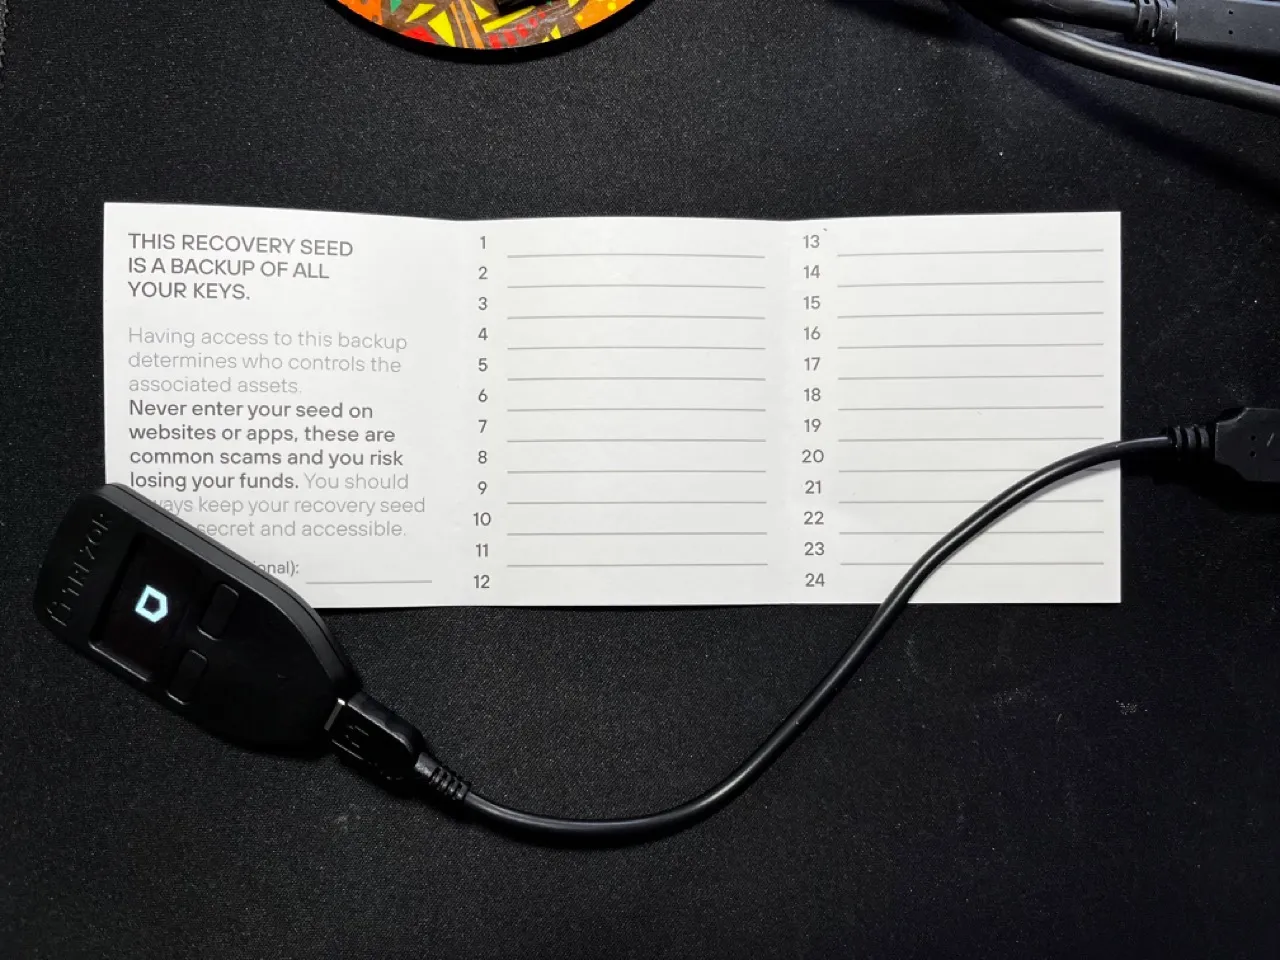 THIS RECOVERY SEED
IS A BACKUP OF ALL
YOUR KEYS.
Having access to this backup
determines who controls the
associated assets.
Never enter your seed on
websites or apps, these are
common scams and you risk
losing your funds. You should
keep your recovery seed
secret and accessible.
1
2
3
4
5
6
7
8
9
10
11
12
13
14
15
16
17
18
19
20
21
22
23
24
TREZOR